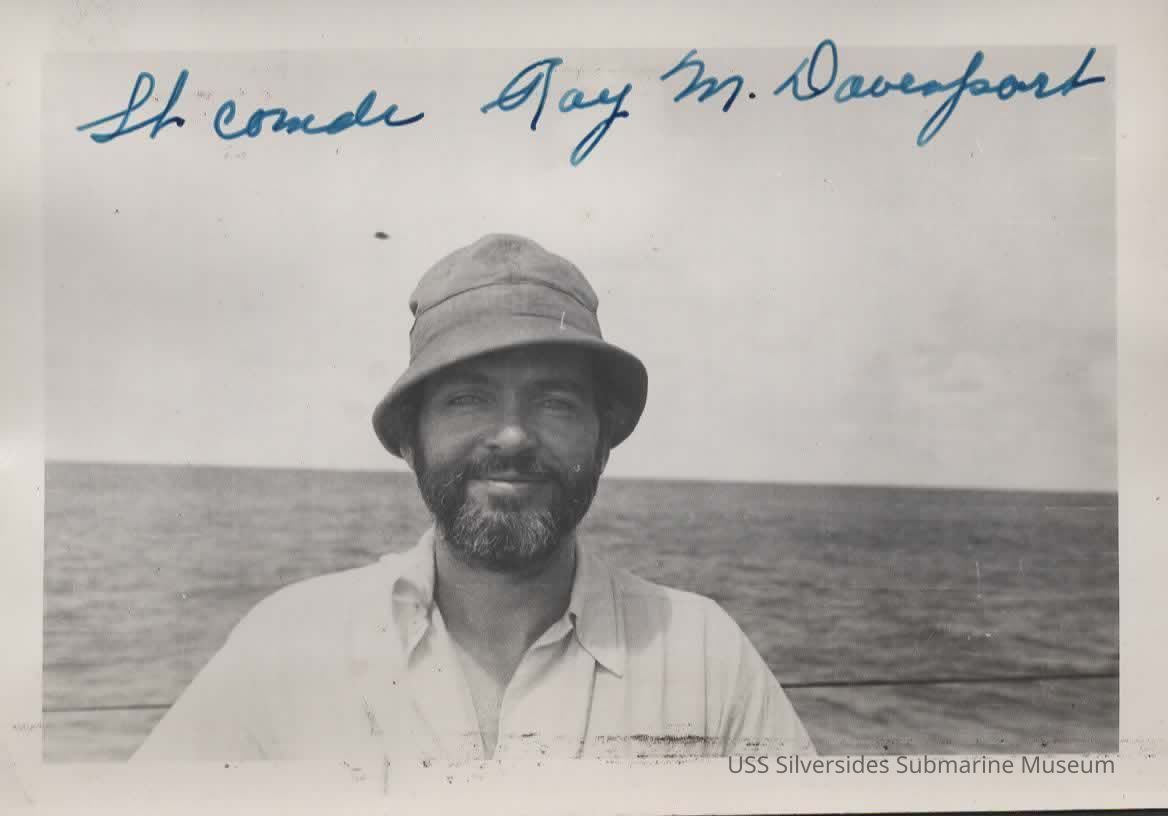 Lt comdr Roy M. Davenport
USS Silversides Submarine Museum